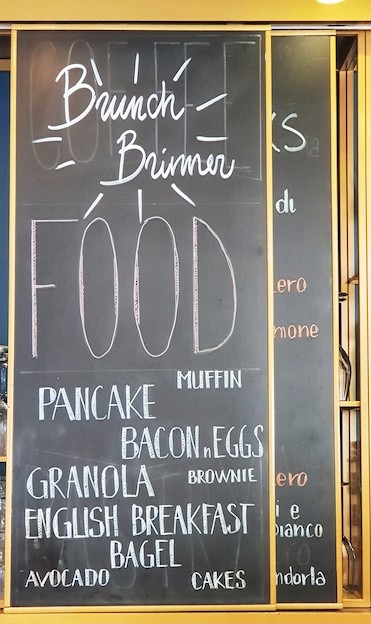 Brunch
Brinner
FOOD
MUFFIN
PANCAKE
BACON n EGGS
GRANOLA
BROWNIE
ENGLISH BREAKFAST
BAGEL
AVOCADO
CAKES
KS
di
ero
mone
ero
i e
bianco
ndorla